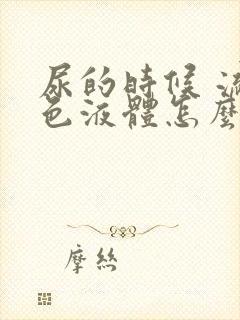 尿的時候
色液體怎麼
摩絲